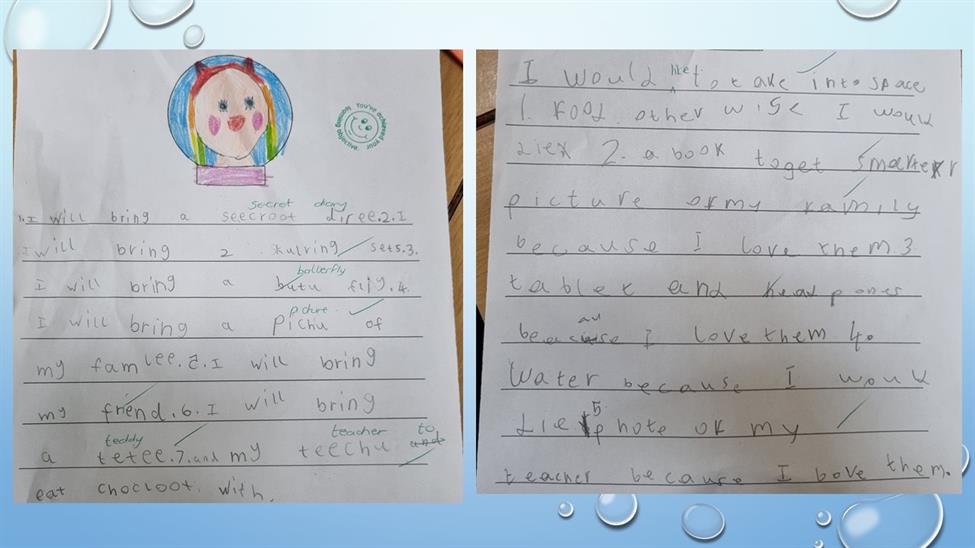 You've achieved your learning objective.
secret diary
1. I will bring a seecroot diree.2.I
I will bring 2 kulring sets.3.
butterfly
I will bring a butu fliy.4.
picture
I will bring a pichu of
my famlee.5.I will bring
my friend.6.I will bring
teddy teacher to
a tetee.7.and my teechu and
eat chocloot. with.
I would like to take into space
1. Food other wise I would
2. a book to get smarter
picture of my family
because I love them 3.
tablet and headpones
because I love them 4.
Water because I would
5
photo of my
teacher because I love them.